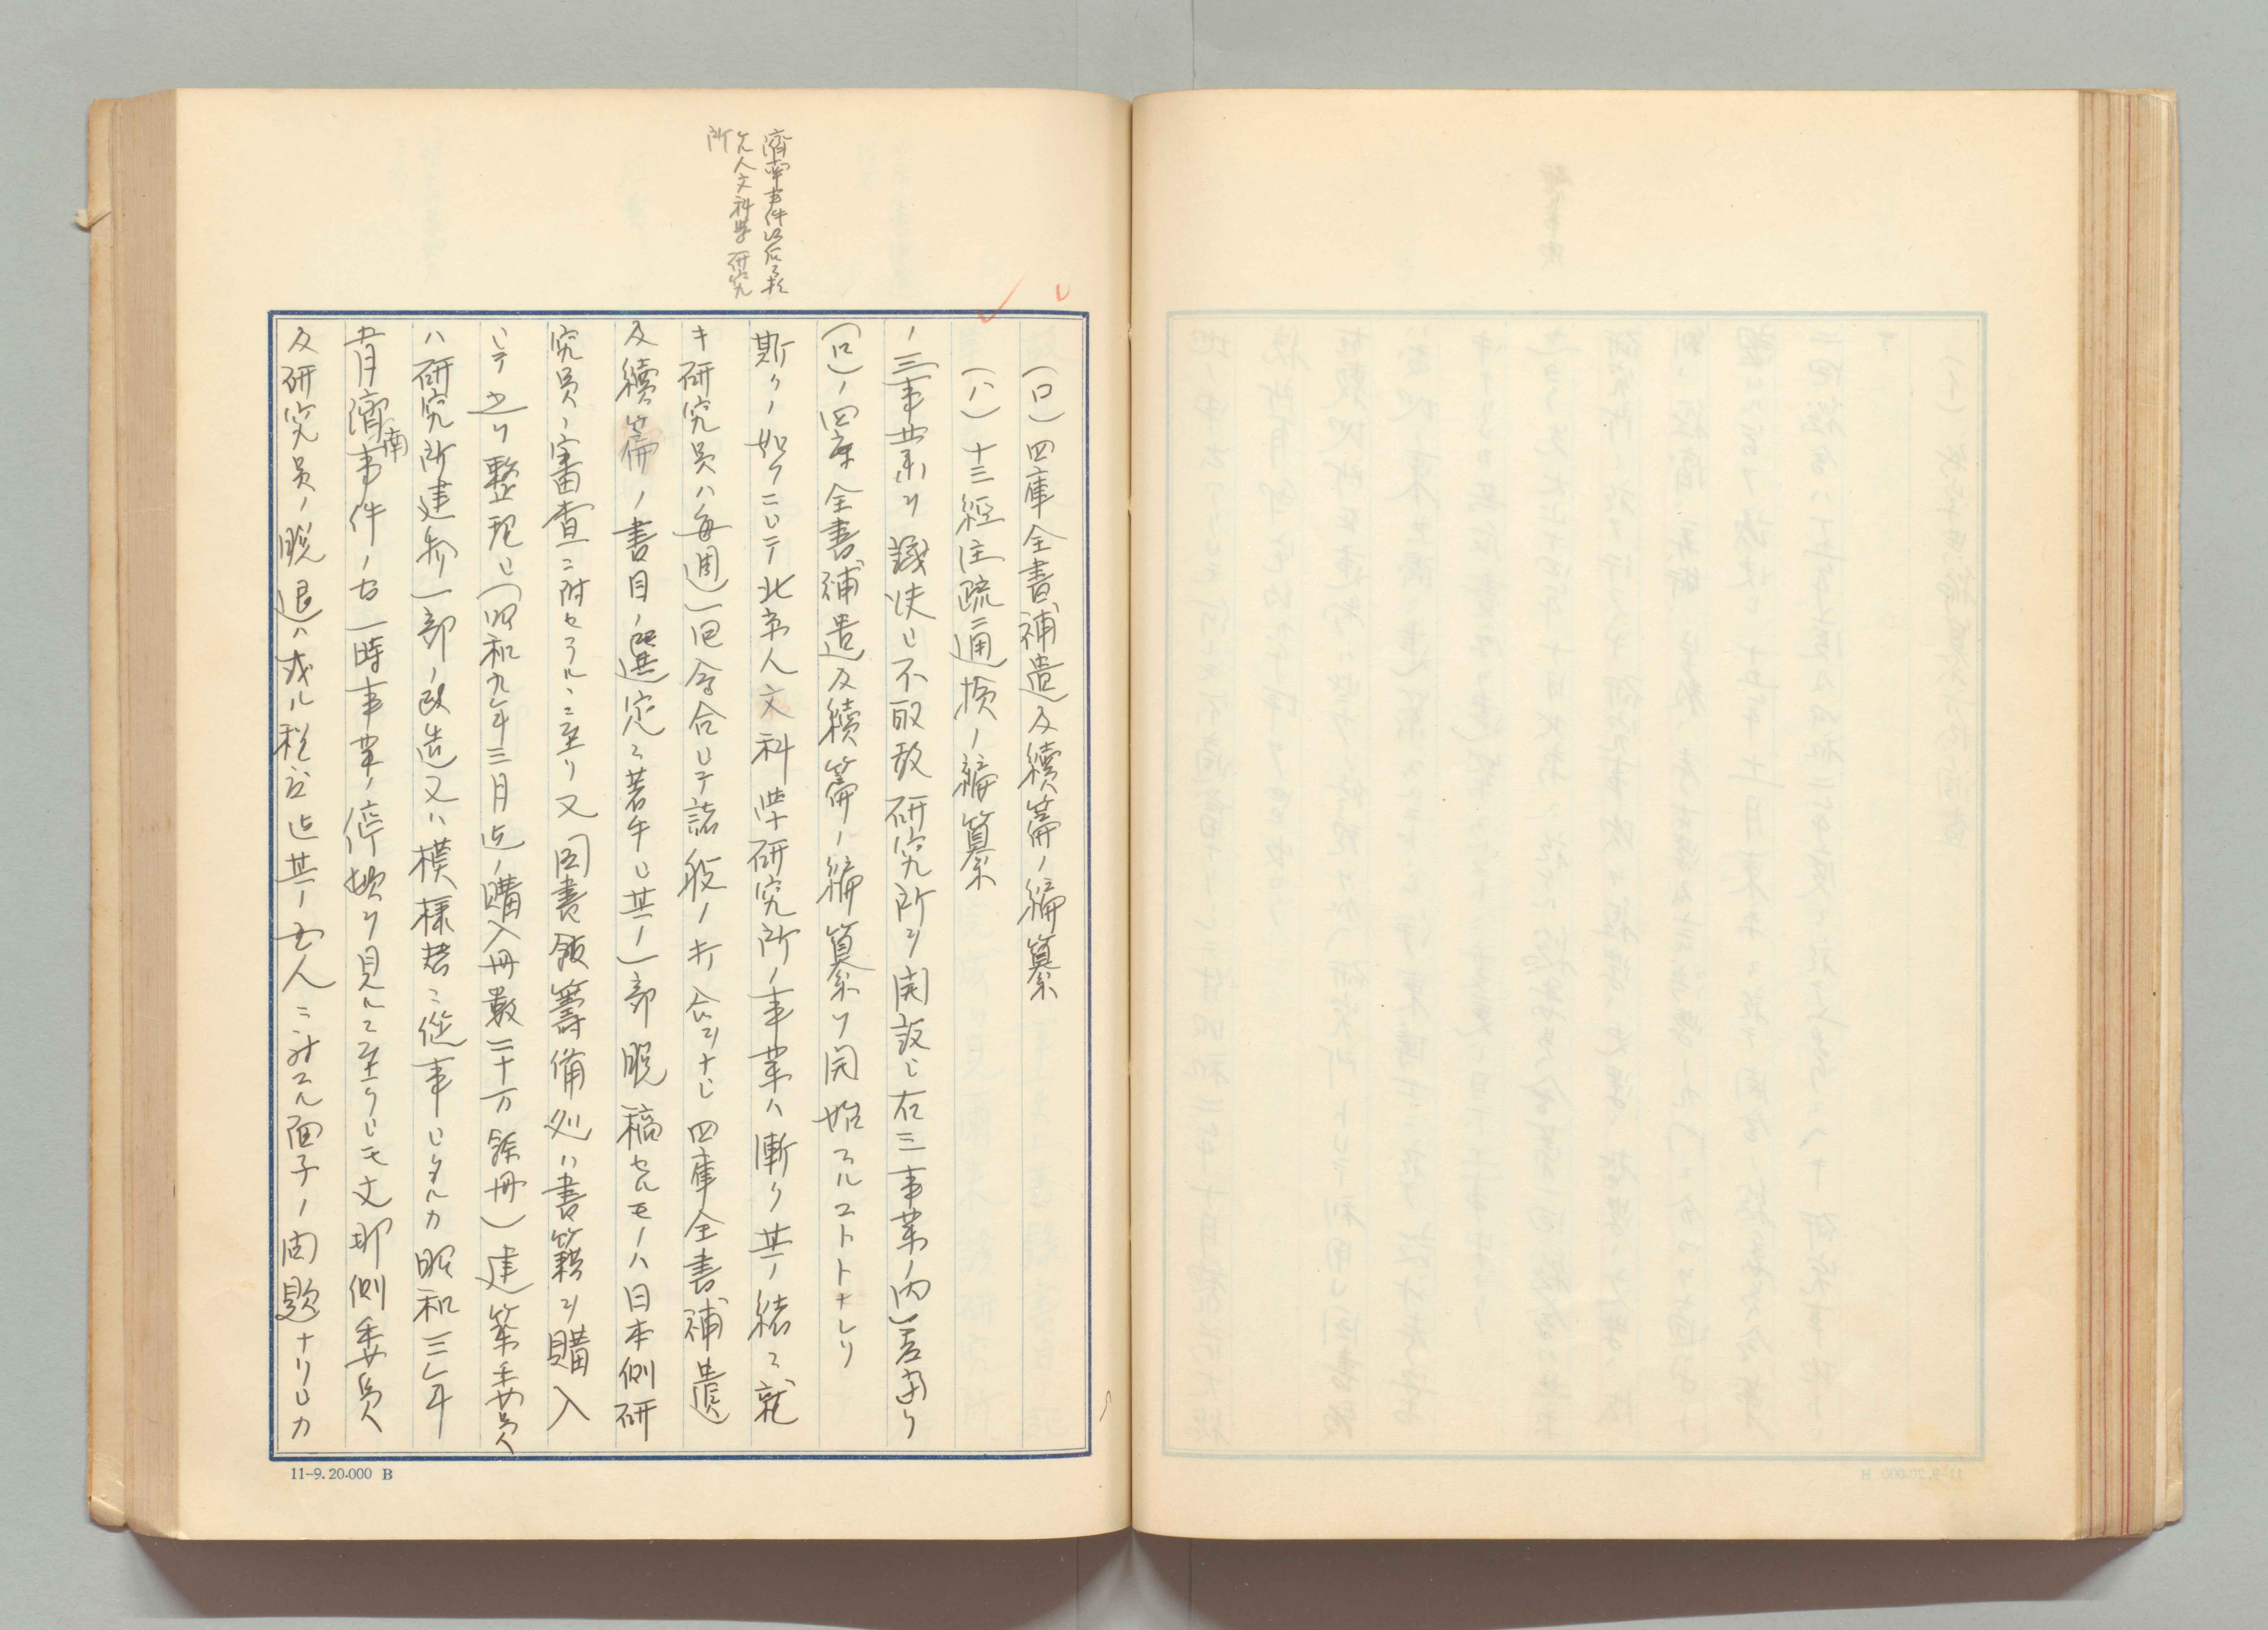 濟南事件以后ニ於
ケル人文科學研究
所
(ロ)四庫全書補遺及續篇ノ編纂
(ハ)十三經注疏通檢ノ編纂
ノ三事業ヲ議決シ不取敢研究所ヲ開設シ右三事業ノ内
(ロ)ノ四庫全書補遺及續篇ノ編纂ヲ開始スルコトトナレリ
斯クノ如クニシテ北京人文科學研究所ノ事業ハ漸ク其ノ緒ニ就
キ研究員ハ每週一回會合シテ諸般ノ打合ヲナシ四庫全書補遺
及續篇ノ書目ノ選定ニ著手シ其ノ一部脫稿セルモノハ日本側研
究員ノ審査ニ附セラルニ至リ又図書館籌備処ハ書籍ヲ購入
シテ之ヲ整理シ(昭和九年三月迄ノ購入冊數二十万餘冊)建築委員
ハ研究所建物一部ノ改造又ハ模樣替ニ從事シタルカ昭和三年
五月濟南事件ノ為一時事業ノ停頓ヲ見ルニ至リシモ支那側委員
及研究員ノ脫退ハ或ル程度迄其ノ個人ニ対スル面子ノ問題ナリシカ
11-9. 20.000 B